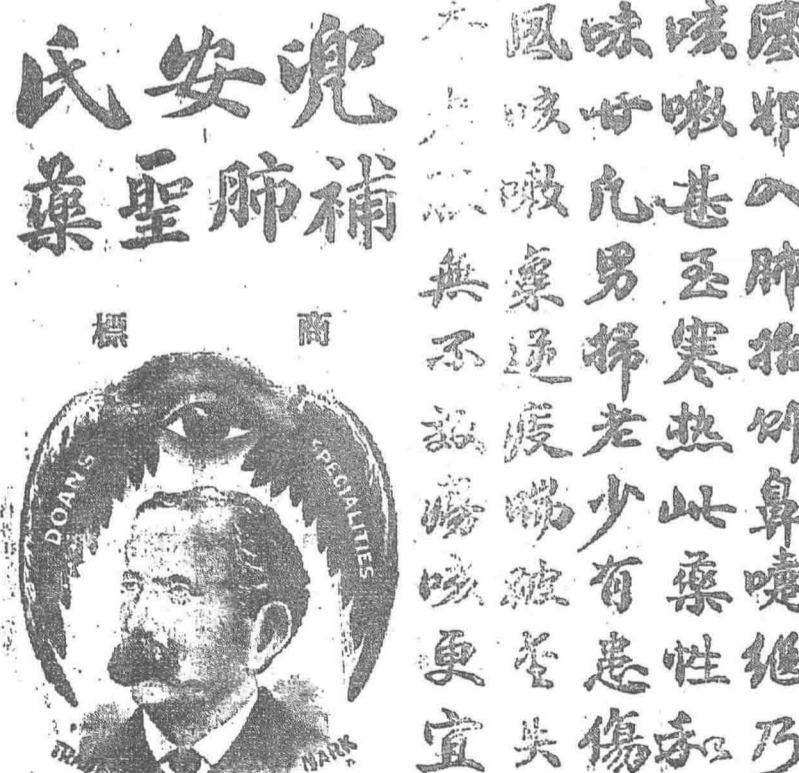 兜安氏
補肺聖藥
商標
DOAN'S SPECIALITIES
TRADE MARK
風邪入肺始則鼻嚏继乃
咳嗽甚至寒热此藥性和
味甘凡男婦老少有患傷
風咳嗽氣逆痰喘失
無不咳更宜